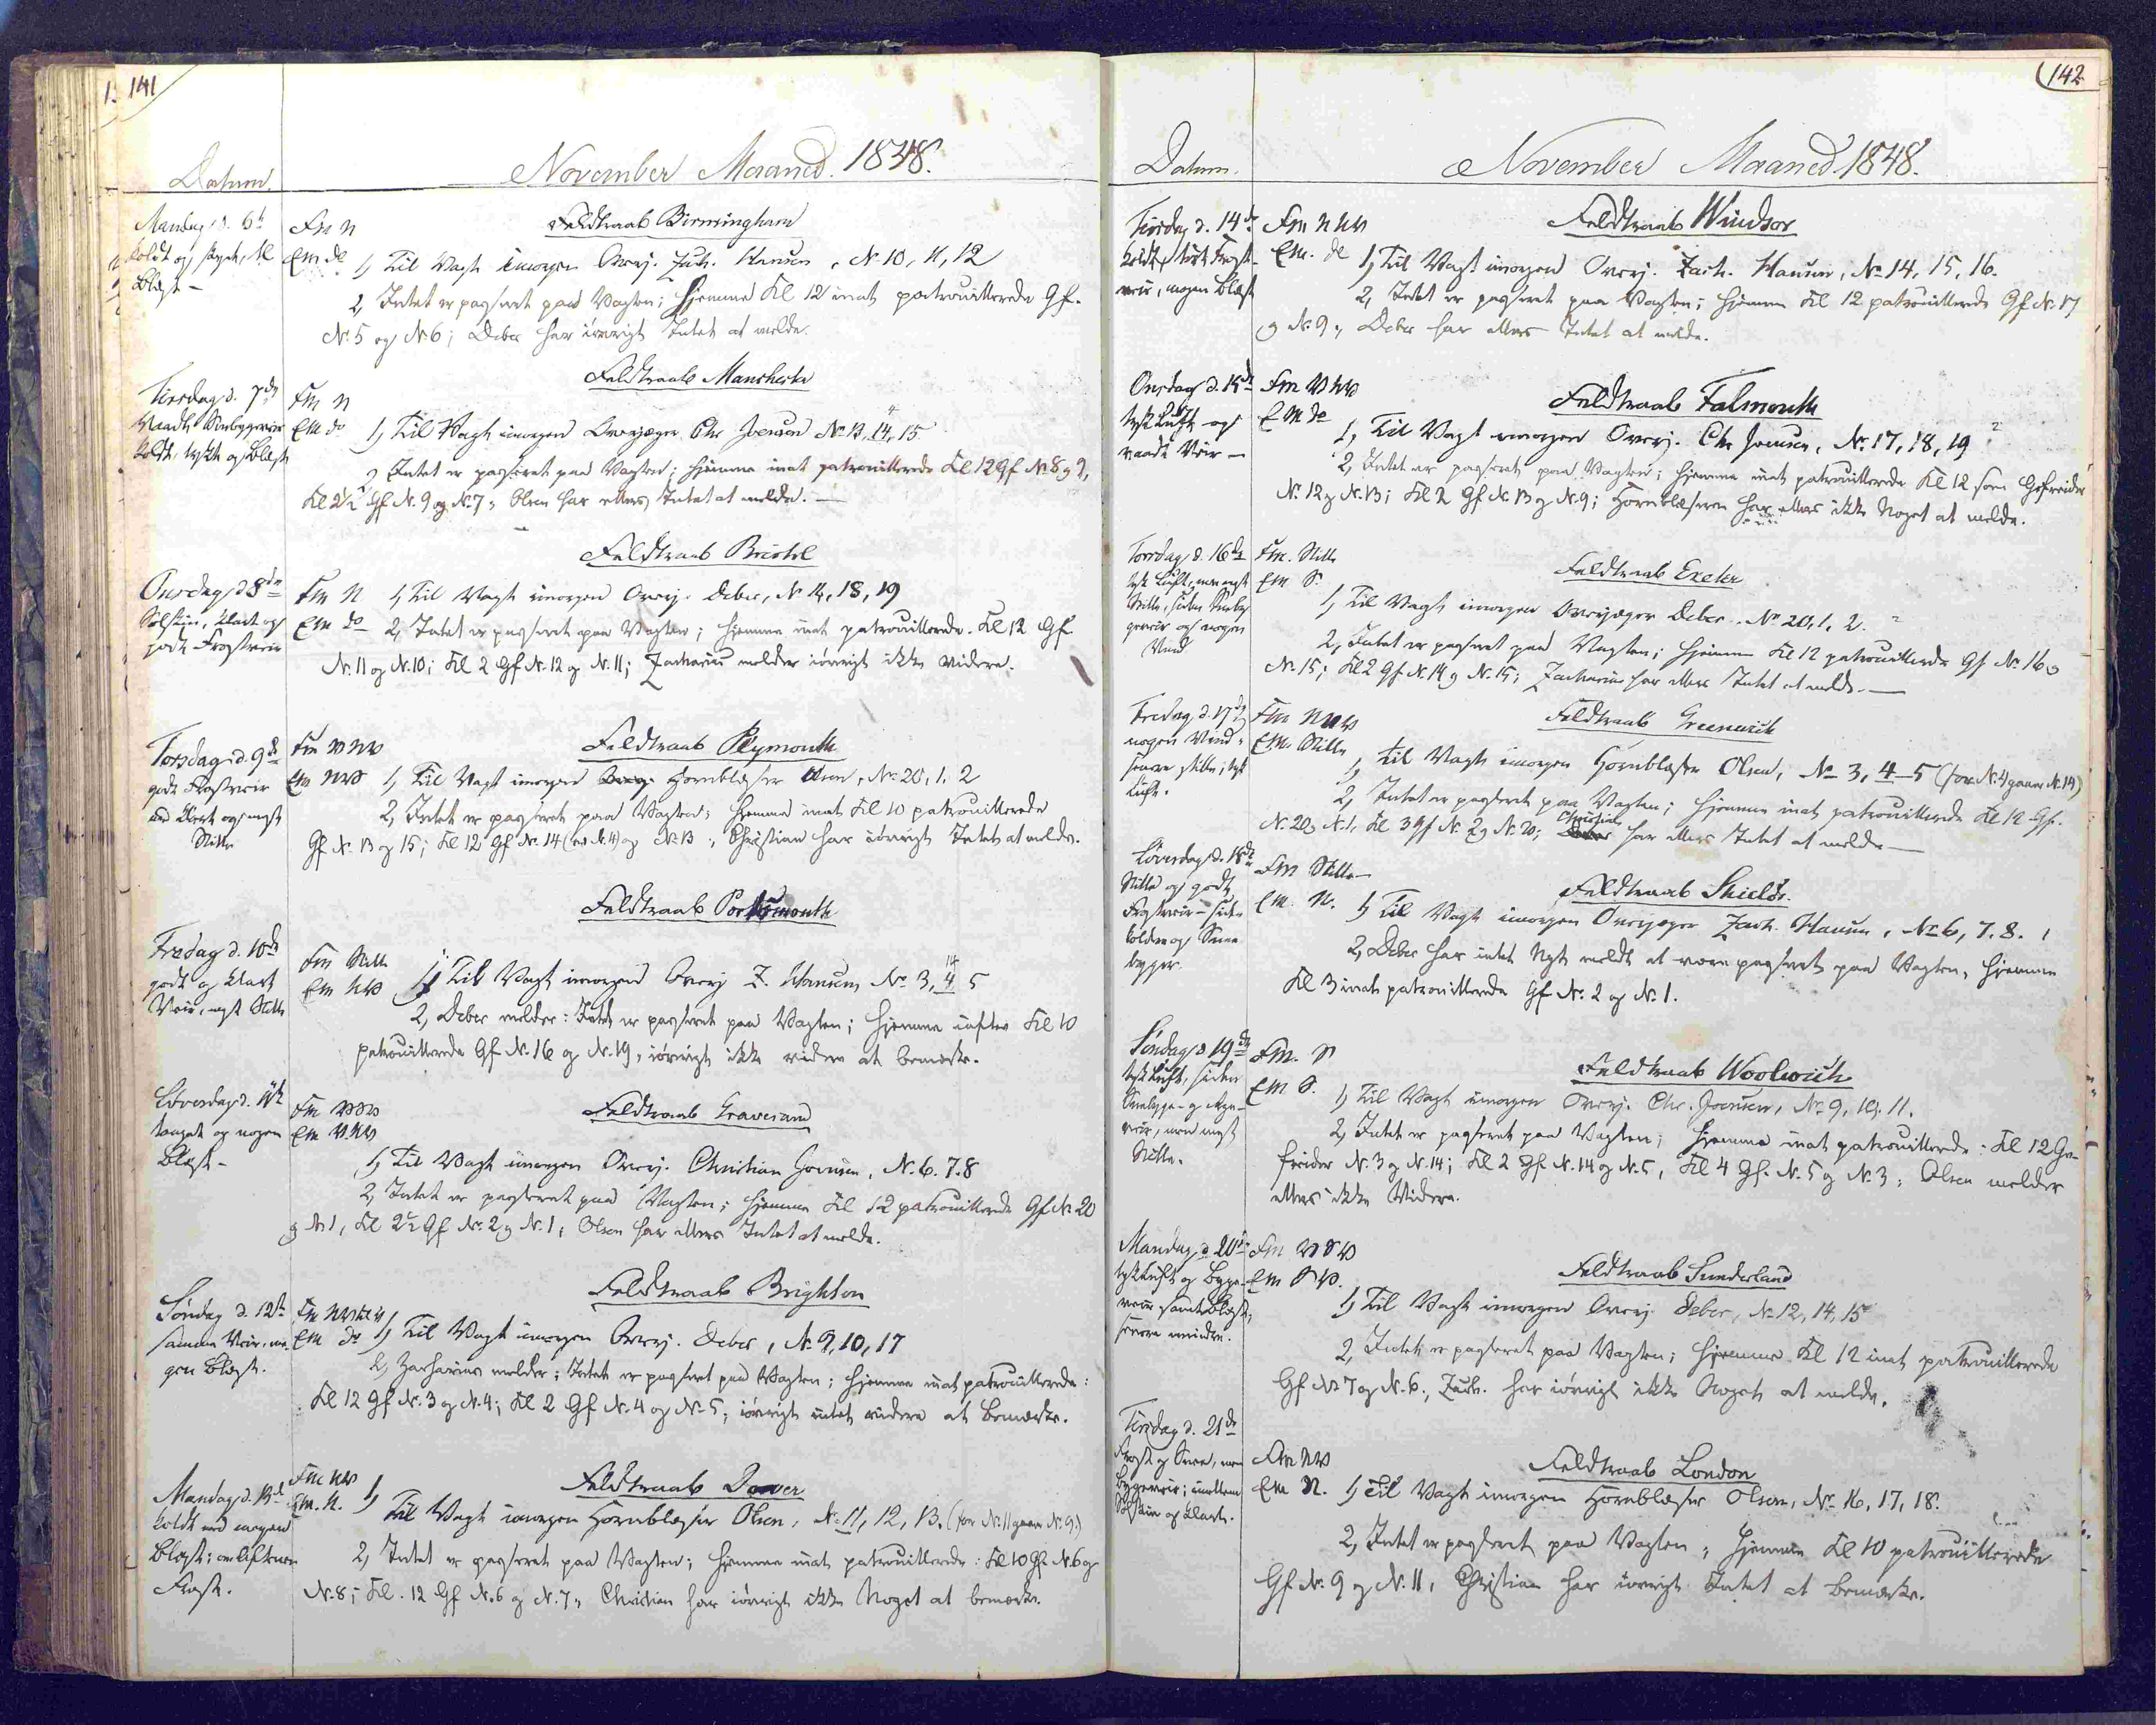 141
Datum.
November Maaned. 1848.
Feldtraab Birmingham
Mandag d. 6te
koldt og
Blæst –
Fm N
Em do
1, Til Vagt imorgen Overj. Zach. Hansen, No 10, 11, 12
2, Intet er passeret paa Vagten; hjemme Kl 12 inat patrouillerede Gf.
No 5 og No 6; Deber har iøvrigt Intet at melde.
Feldtraab Manchester
Tirsdag d. 7de
Vaadt, Sneebygeveir
koldt, tykt og Blæst
Fm N
Em do
4
1, Til Vagt imorgen Overjæger Chr Joensen No 13, 14, 15
2 Intet er passeret paa Vagten; hjemme inat patrouillerede Kl 12 Gf No 8 og 9,
Kl 2½ Gf No. 9 og No 7; Olsen har ellers Intet at melde. —
Feldtraab Bristol
Onsdag d 8de
Solskin, klart og
godt Frostveir
Fm N
Em do
1, Til Vagt imorgen Overj. Deber, No 16, 18, 19
2, Intet er passeret paa Vagten; hjemme inat patrouillerede. Kl 12 Gf
No. 11 og No. 10; Kl 2 Gf No. 12 og No. 11; Zacharias melder iøvrigt ikke videre.
Feldtraab Plymouth
Torsdag d. 9de
godt Frostveir
klart og mest
Stille
Fm VNV
Em NV
1, Til Vagt imorgen Hornblæser Olsen, No 20, 1, 2
2, Intet er passeret paa Vagten; hjemme inat Kl 10 patrouillerede
Gf No. 13 og 15; Kl 12 Gf No. 14 og No 13; Christian har iøvrigt Intet at melde.
Feldtraab Portsmouth
Fredag d. 10de
godt og klart
Veir, mest Stille
Fm Stille
Em NV
14
1, Til Vagt imorgen Overj Z. Hansen No 3, 4, 5
2, Deber melder: Intet er passeret paa Vagten; hjemme iaftes Kl 10
patrouillerede Gf No. 16 og No. 19, iøvrigt ikke videre at bemærke.
Feldtraab Gravesand
Løverdag d. 11te
taaget og nogen
Blæst –
Fm VSV
Em VNV
1, Til Vagt imorgen Overj. Christian Joensen, No. 6. 7. 8
2, Intet er passeret paa Vagten; hjemme Kl 12 patrouillerede Gf No 20
og No 1, Kl 2½ Gf No. 2 og No. 1; Olsen har ellers Intet at melde.
Feldtraab Brighton
Søndag d. 12te
samme Veir, no-
gen Blæst.
Em do
1, Til Vagt imorgen Overj. Deber, No 9, 10, 17
2, Zacharias melder: Intet er passeret paa Vagten; hjemme inat patrouillerede:
Kl 12 Gf No. 3 og No. 4; Kl 2 Gf No. 4 og No. 5; iøvrigt intet videre at bemærke.
Feldtraab Dower
Mandag d. 13de
koldt med nogen
Blæst;
Frost.
Fm NV
Em. N.
1, Til Vagt imorgen Hornblæser Olsen, No 11, 12, 13. (for No. 11 gaaer No. 9.)
2, Intet er passeret paa Vagten; hjemme inat patrouillerede: Kl 10 Gf No. 6 og
No. 8; Kl. 12 Gf No. 6 og No. 7; Christian har iøvrigt ikke Noget at bemærke.
142
Datum.
November Maaned 1848.
Feldtraab Windsor
Tirsdag d. 14de
koldt, tørt Frost-
veir, nogen Blæst
Fm NNV
Em. do
1, Til Vagt imorgen Overj. Zach. Hansen, No 14, 15, 16.
2, Intet er passeret paa Vagten; hjemme Kl 12 patrouillerede Gf No. 17
og No. 9; Deber har ellers Intet at melde.
Feldtraab Falmouth
Onsdag d. 15de
tyk Luft og
vaadt Veir –
Fm VNV
Em do
1, Til Vagt imorgen Overj. Chr Joensen, No. 17, 18, 19
2, Intet er passeret paa Vagten; hjemme inat patrouillerede Kl 12 som Gefreider
No. 12 og No. 13; Kl 2 Gf No. 13 og No. 9; Hornblæseren har ellers ikke Noget at melde.
Feldtraab Exeter
Torsdag d. 16de
tyk Luft, mest
Stille, siden Sneeby-
geveir og nogen
Vind
Fm. Stille
Em S.
1, Til Vagt imorgen Overjæger Deber. No 20, 1, 2.
2, Intet er passeret paa Vagten; hjemme Kl 12 patrouillerede Gf No. 16 og
No. 15; Kl 2 Gf No. 14 og No. 15; Zacharias har ellers Intet at melde. —
Feldtraab Greenwich
Fredag d. 17de
nogen Vind,
senere stille, tyk
Luft.
Fm NNV
Em. Stille
1, Til Vagt imorgen Hornblæser Olsen, No 3, 4, 5 (for No. 4 gaaer No. 14)
2, Intet er passeret paa Vagten; hjemme inat patrouillerede Kl 12 Gf.
Christian
No. 20 og No. 1, Kl 3 Gf No. 2 og No. 20; Deber har ellers Intet at melde —
Feldtraab Shields.
Løverdag d. 18de
Stille og godt
Frostveir – siden
koldere og Snee
byger.
Fm Stille
Em. N.
1, Til Vagt imorgen Overjæger Zach. Hansen, No 6, 7. 8.
2, Deber har intet Nyt meldt at være passeret paa Vagten, hjemme
Kl 3 inat patrouillerede Gf No. 2 og No. 1.
Feldtraab Woolwich
Søndag d 19de
tyk Luft, siden
Sneebyge- og Regn-
veir, men mest
Stille.
Fm. S
Em S.
1, Til Vagt imorgen Overj. Chr. Joensen, No 9, 10, 11.
2, Intet er passeret paa Vagten; hjemme inat patrouillerede: Kl 12 Ge-
freider No. 3 og No. 14; Kl 2 Gf No. 14 og No. 5, Kl 4 Gf. No. 5 og No. 3; Olsen melder
ellers ikke Videre.
Feldtraab Sunderland
Mandag d. 20de
tyk Luft og Byge-
veir samt Blæst,
senere mindre.
Fm VSV
Em SV.
1, Til Vagt imorgen Overj. Deber, No 12, 14, 15
2, Intet er passeret paa Vagten; hjemme Kl 12 inat patrouillerede
Gf No 7 og No. 6., Zach. har iøvrigt ikke Noget at melde.
Feldtraab London
Tirsdag d. 21de
Frost og Snee, men
Bygeveir; imellem
Solskin og klart.
Fm NV
Em N.
1, Til Vagt imorgen Hornblæser Olsen, No 16, 17, 18.
2, Intet er passeret paa Vagten; hjemme Kl 10 patrouillerede
Gf No. 9 og No. 11, Christian har iøvrigt Intet at bemærke.